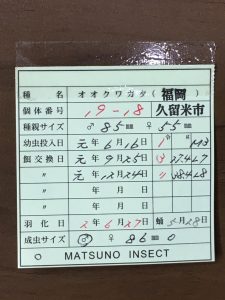 種名 オオクワガタ (福岡)
個体番号 19-18 久留米市
種親サイズ ♂85㎜ ♀55㎜
幼虫投入日 元年6月16日
餌交換日 元年9月25日
〃 元年12月24日
〃 年 月 日
羽化日 2年6月27日 蛹5月28日
成虫サイズ ♂ ♀ 86㎜0
MATSUNO INSECT